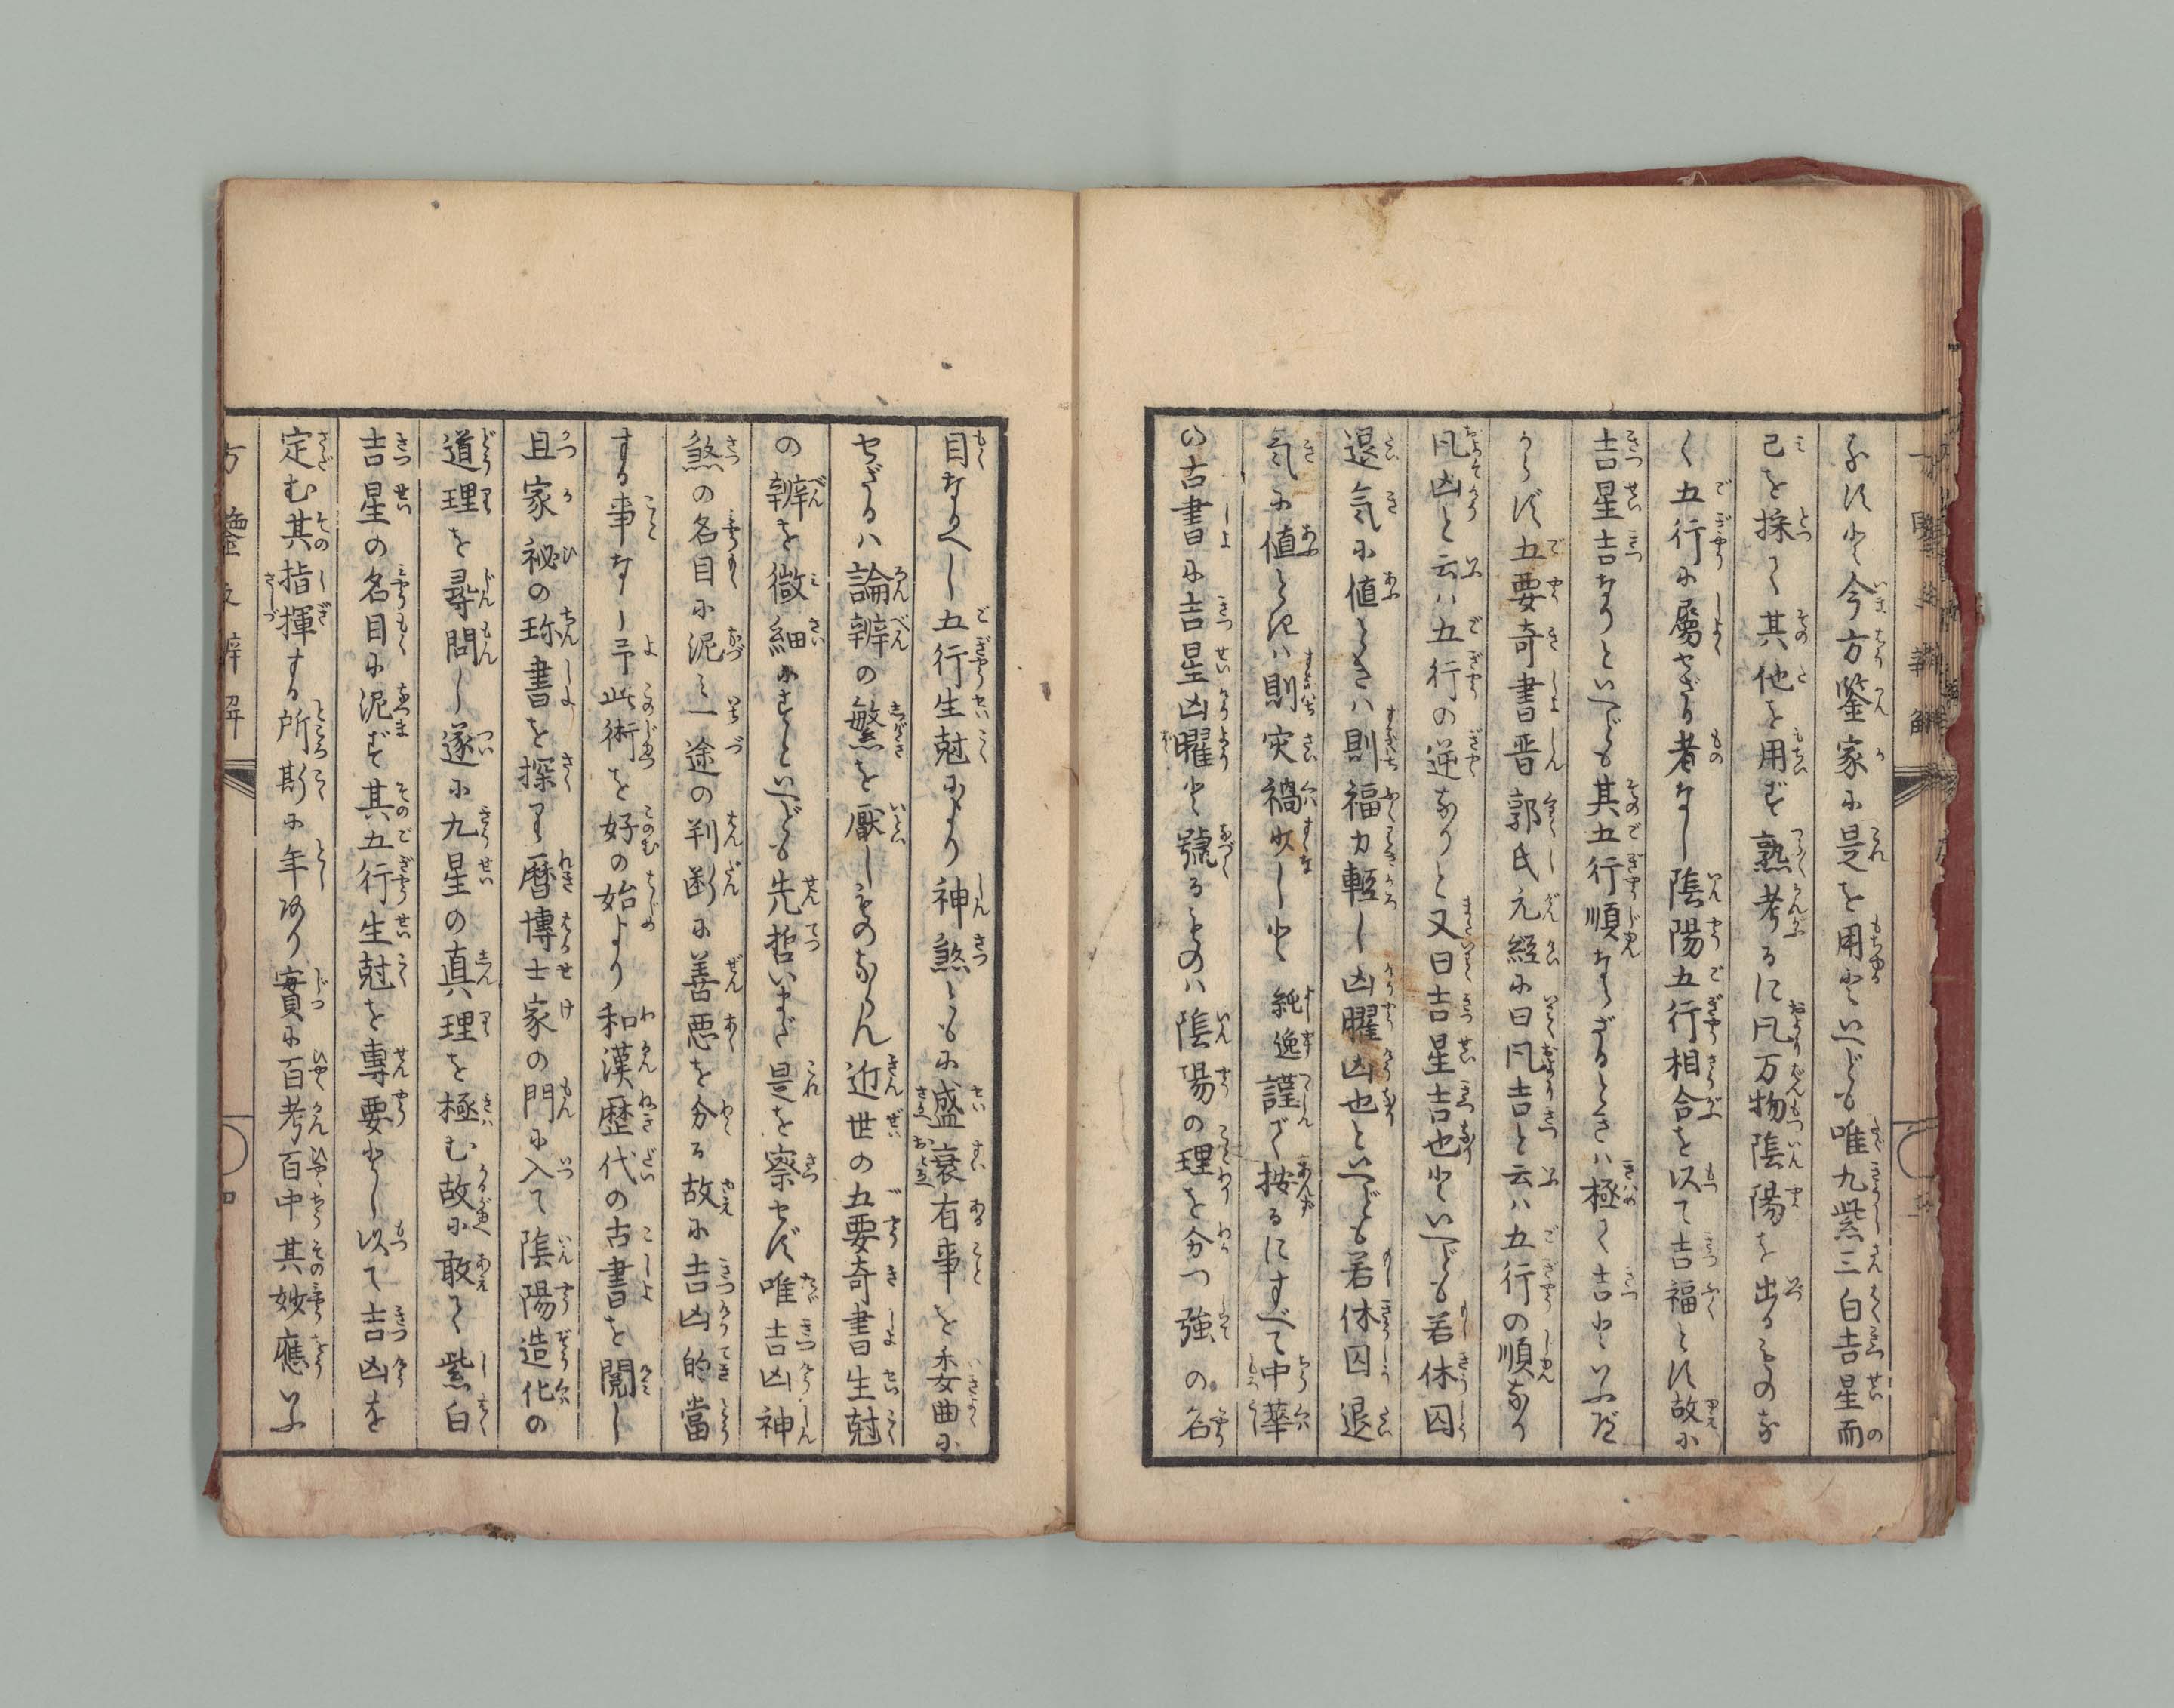 なす也今方鑒家に是を用ゆといへども唯九紫三白吉星而
已を採て其他を用ず熟考るに凡万物陰陽を出るものな
く五行に属せざる者なし陰陽五行相合を以て吉福とす故に
吉星吉なりといへども其五行順ならざるときハ極て吉といふべ
からず五要奇書晋郭氏元経に曰凡吉と云ハ五行の順なり
凡凶と云ハ五行の逆なりと又曰吉星吉也といへども若休囚
退気に値ときハ則福力軽し凶曜凶也といへども若休囚退
気に値ざれハ則災禍少しと 純逸謹で按るにすべて中華
の古書に吉星凶曜と号るものハ陰陽の理を分つ強の名
目なるべし五行生尅により神煞ともに盛衰有事を委曲に
せざるハ論辨の繁を厭しものならん近世の五要奇書生尅
の辨を微細にすといへども先哲いまだ是を察せず唯吉凶神
煞の名目に泥ミ一途の判断に善悪を分る故に吉凶的當
する事なし予此術を好の始より和漢歴代の古書を閲し
且家秘の珎書を探り暦博士家の門に入て陰陽造化の
道理を尋問し遂に九星の真理を極む故に敢て紫白
吉星の名目に泥ず其五行生尅を専要とし以て吉凶を
定む其指揮する所斯に年あり實に百考百中其妙應いふ